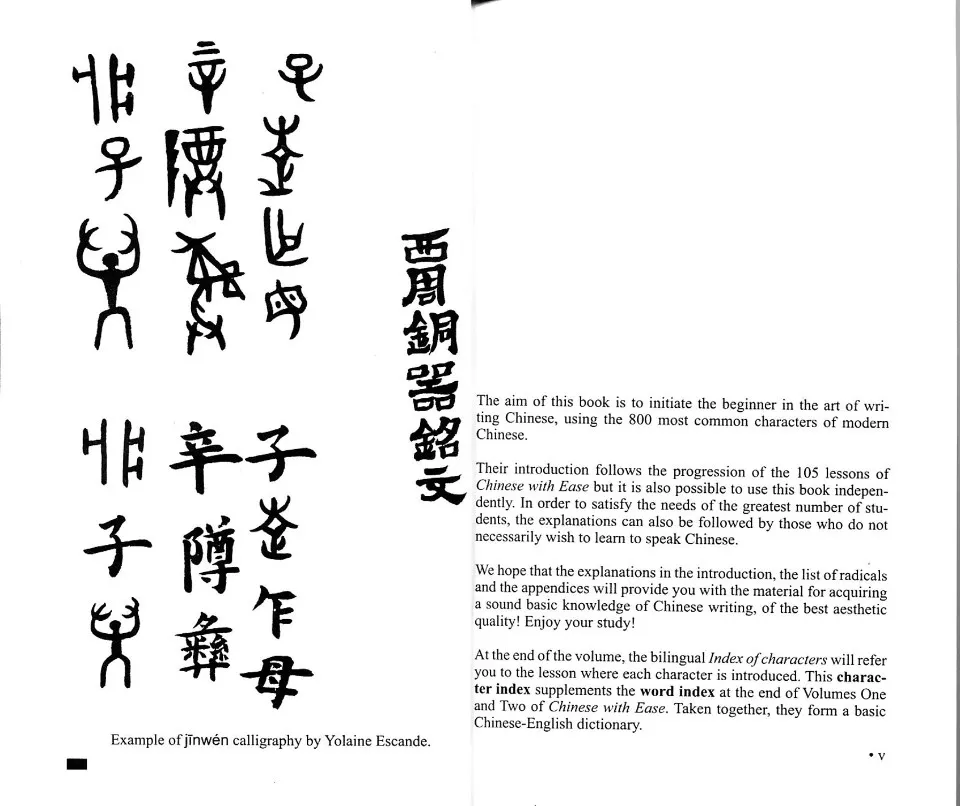 西周銅器銘文
子乍母
辛彝
子
子乍母
辛彝
子
Example of jīnwén calligraphy by Yolaine Escande.
The aim of this book is to initiate the beginner in the art of wri-
ting Chinese, using the 800 most common characters of modern
Chinese.
Their introduction follows the progression of the 105 lessons of
Chinese with Ease but it is also possible to use this book indepen-
dently. In order to satisfy the needs of the greatest number of stu-
dents, the explanations can also be followed by those who do not
necessarily wish to learn to speak Chinese.
We hope that the explanations in the introduction, the list of radicals
and the appendices will provide you with the material for acquiring
a sound basic knowledge of Chinese writing, of the best aesthetic
quality! Enjoy your study!
At the end of the volume, the bilingual Index of characters will refer
you to the lesson where each character is introduced. This charac-
ter index supplements the word index at the end of Volumes One
and Two of Chinese with Ease. Taken together, they form a basic
Chinese-English dictionary.
• v